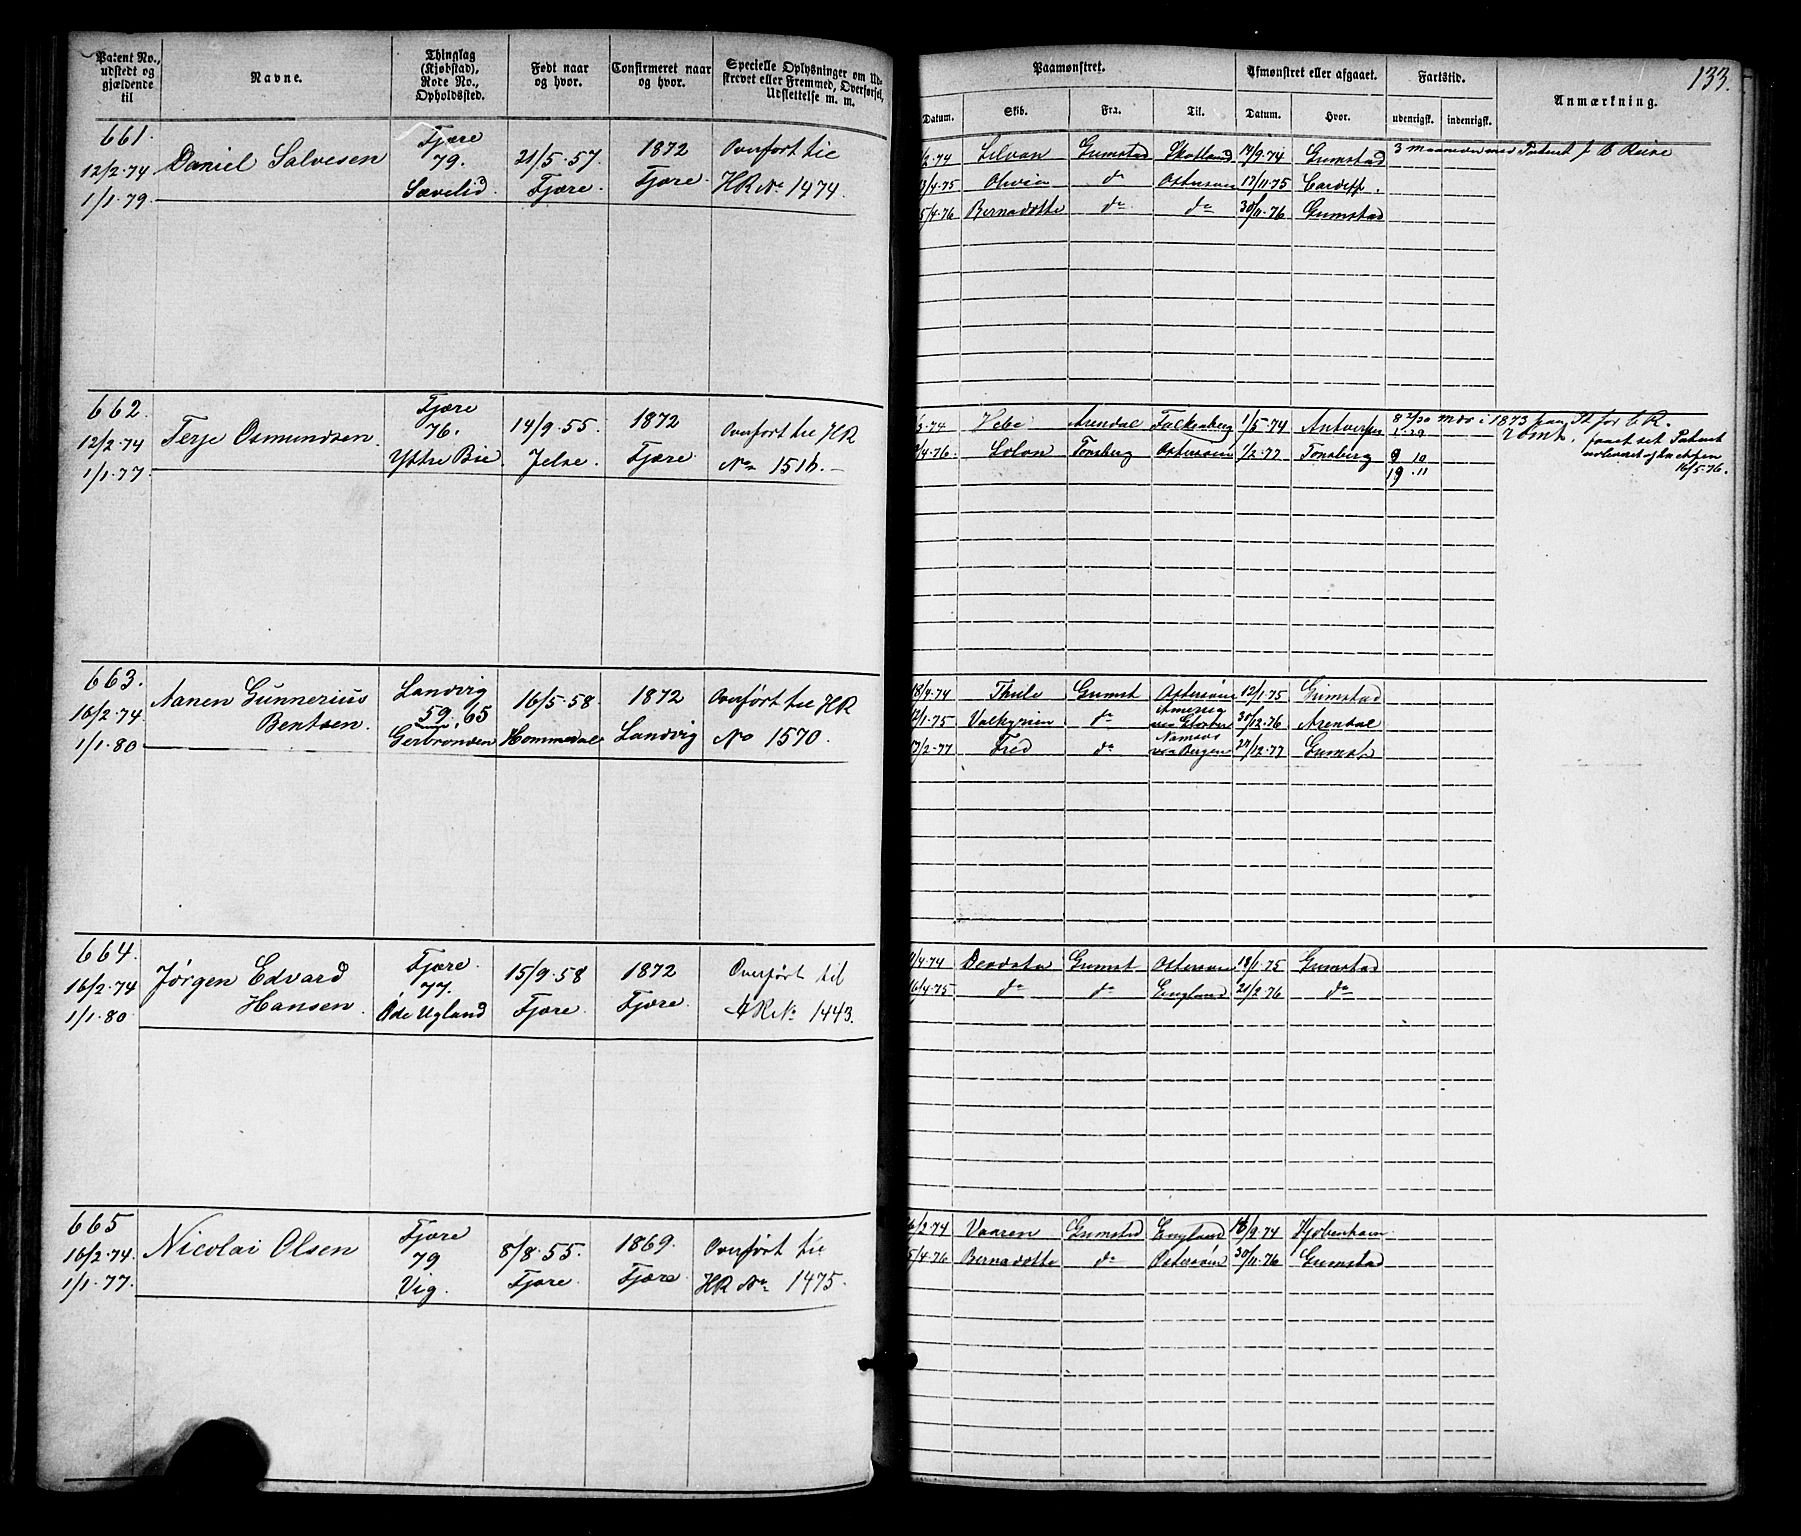 133.
Patent No., udstedt og gjældende til
Navne.
Thinglag (Kjøbstad), Rode No., Opholdssted.
Født naar og hvor.
Confirmeret naar og hvor.
Specielle Oplysninger om Udskrevet eller Fremmed, Overførsel, Udslettelse m. m.
Paamønstret.
Afmønstret eller afgaaet.
Fartstid.
Anmærkning.
Datum. Skib. Fra. Til. Datum. Hvor. udenrigsk. indenrigsk.
661.
12/2·74
1/1·79.
Daniel Salvesen
Fjære
79.
Sævelid
21/5·57.
Fjære.
1872
Fjære.
Overført til
HR No 1474.
/2·74 Silvan Grmstad Skotland 17/9·74 Grmstad 3 maaneder med Patent
/4·75 Olivia do Østersøen 17/11·75 Cardiff.
5/4·76 Bernadotte do do 30/11·76 Grmstad
662.
12/2·74
1/1·77.
Terje Osmundsen.
Fjære
76.
Yttre Bie
14/9·55.
Jelse.
1872
Fjære
Overført til HR
No 1516.
/3·74 Hebe Arendal Falkenberg 1/5·74 Antverpen
/4·76. Solon Tønsberg Østersøen 1/2·77 Tønsberg 9 10
19 11
i 1873
16/5·76.
663.
16/2·74
1/1·80
Aanen Gunnerius
Bentsen.
Landvig
59.65
Gerbronden
16/5·58
Hommedal
1872
Landvig
Overført til HR
No 1570.
18/4·74 Thule Grmst Østersøen 12/1·75 Grimstad
/1·75 Valkyrien do 30/12·76 Arendal
17/2·77 Fred do Namsos via Bergen 29/12·77 Grmst
664.
16/2·74
1/1·80
Jørgen Edvard
Hansen.
Fjære.
77.
Øde Ugland
15/9·58
Fjære.
1872
Fjære.
Overført til
HR No 1443.
/4·74 Grmst Østersøen 18/1·75 Grmstad
16/4·75 do do England 21/2·76 do
665
16/2·74.
1/1·77.
Nicolai Olsen
Fjære
79
Vig.
8/8·55.
Fjære.
1869.
Fjære.
Overført til
HR No 1475.
/2·74 Vaaren Grmstad England 18/9·74 Kjøbenhavn
5/4·76 Bernadotte do Østersøen 30/11·76 Grmstad